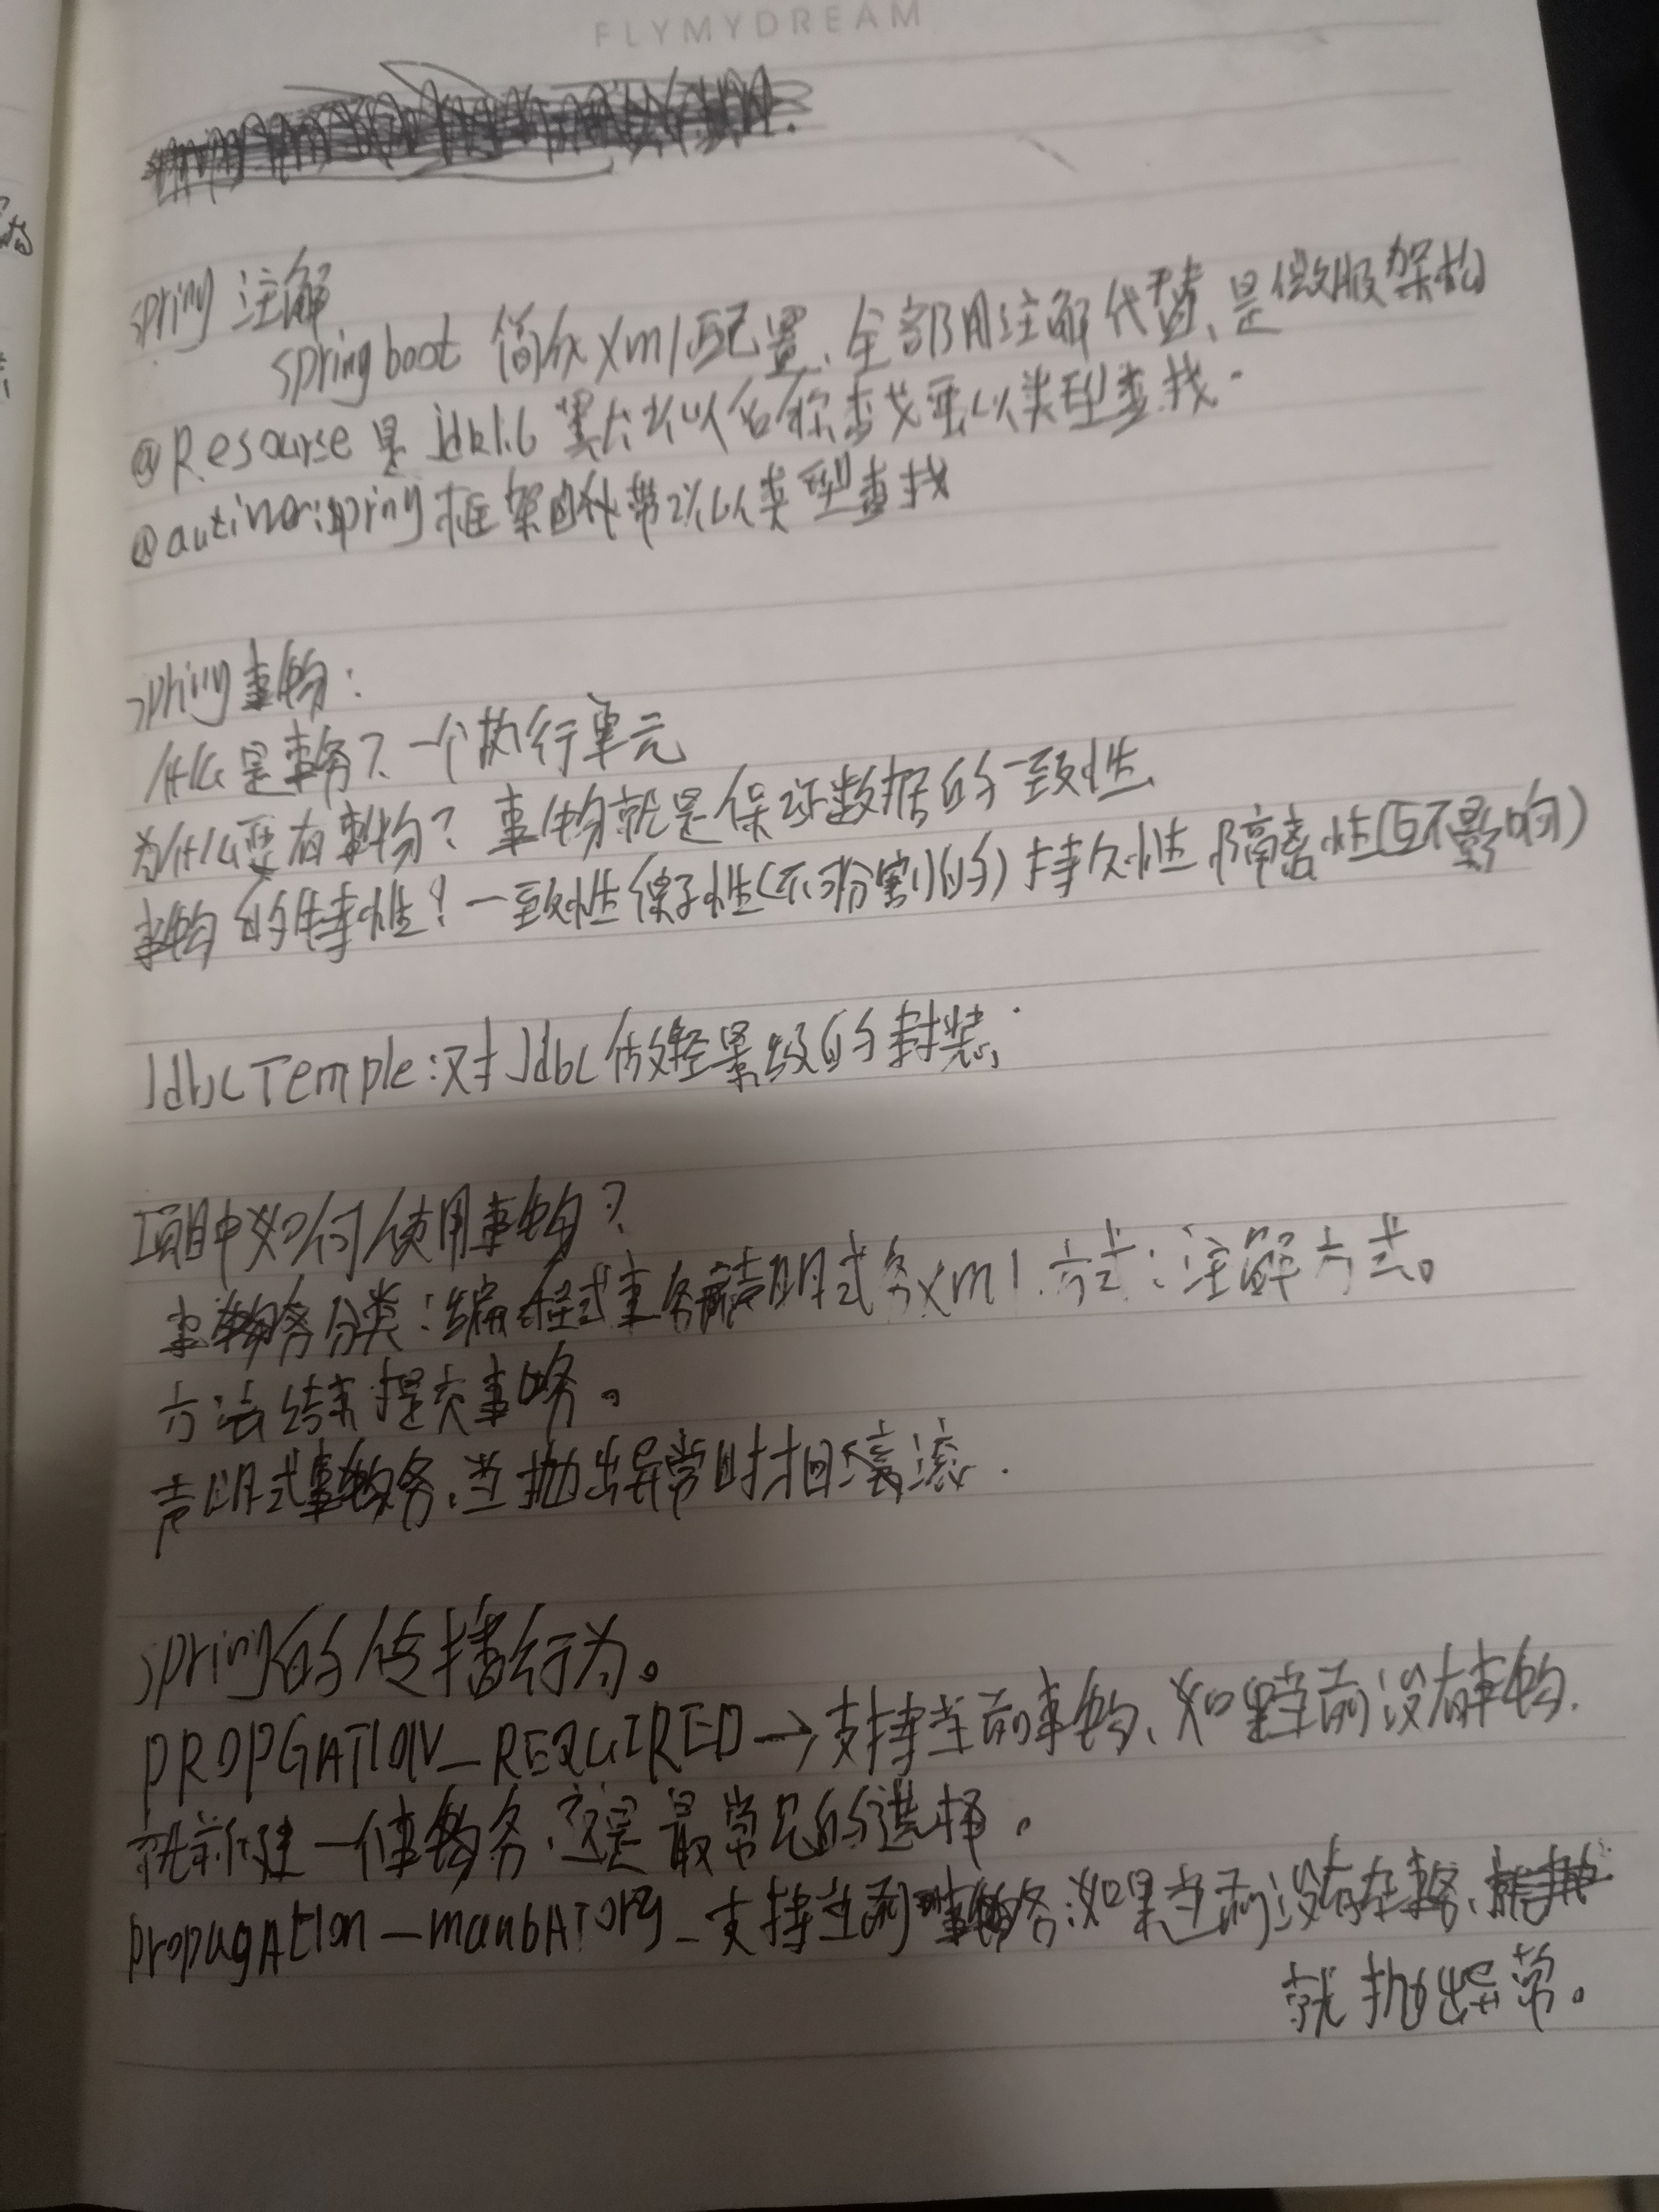 FLYMYDREAM
spring 注解
springboot 简化xml配置、全部用注解代替、是微服架构
@Resourse 是 jdk1.6 默认以名称查找 以类型查找.
@autiwer:spring框架自带 以类型查找
spring事物:
什么是事务?一个执行单元
为什么要有事物?事物就是保证数据的一致性
事物的特性!一致性 原子性(不可分割的)持久性 隔离性(互不影响)
JdbcTemple:对Jdbc做轻量级的封装.
项目中如何使用事物?
事务分类:编程式事务 声明式务xml.方式:注解方式。
方法结束提交事务。
声明式事务、当抛出异常时 滚.
spring的传播行为。
PROPGATION_REQUIRED→支持当前事物、如果当前没有事物.
就新建一个事务.这是最常见的选择。
PropugAtion_manbATory_支持当前事务.如果当前没有存事务、
就抛出异常。